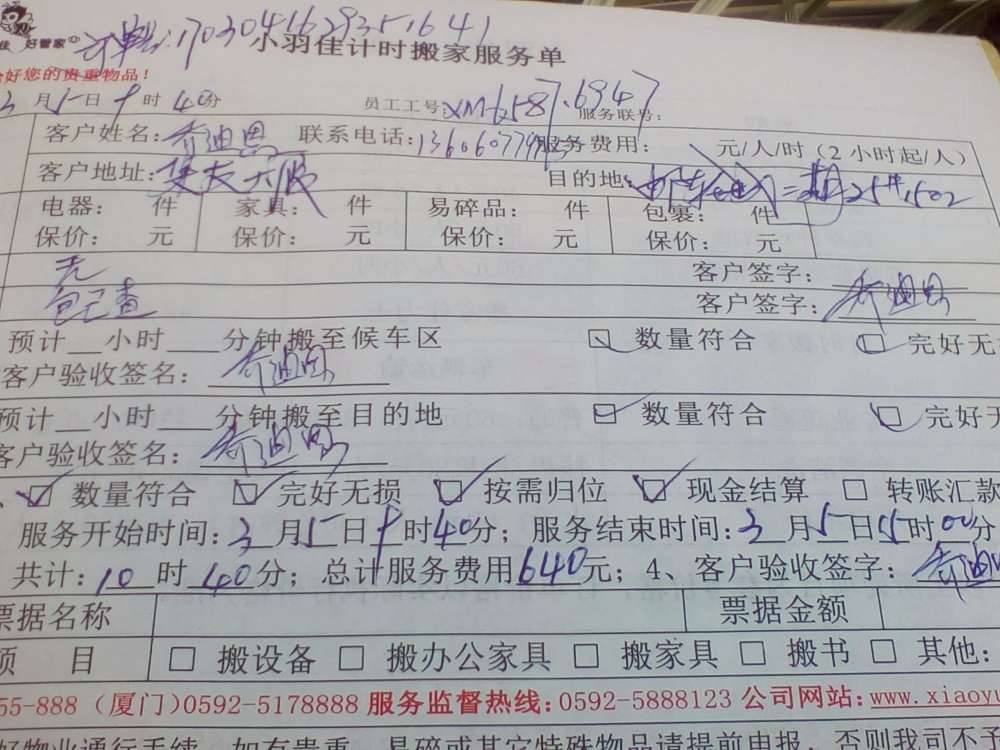 好管家
订单号:1703041629351641
小羽佳计时搬家服务单
好您的贵重物品!
3月5日 时40分 员工工号:XM-6587.6947 服务联号:
客户姓名:乔迪恩 联系电话: 服务费用: 元/人/时(2小时起/人)
客户地址: 目的地: 25#,502
电器: 件 家具: 件 易碎品: 件 包裹: 件
保价: 元 保价: 元 保价: 元 保价: 元
无 客户签字:
包已查 客户签字:乔迪恩
预计 小时 分钟搬至候车区 数量符合 完好无
客户验收签名:乔迪恩
预计 小时 分钟搬至目的地 数量符合 完好
客户验收签名:乔迪恩
数量符合 完好无损 按需归位 现金结算 转账汇款
服务开始时间:3月5日 时40分;服务结束时间:3月5日 时00分
共计:10时40分;总计服务费用640元;4、客户验收签字:乔迪
票据名称 票据金额
项 目 搬设备 搬办公家具 搬家具 搬书 其他:
55-888 (厦门)0592-5178888 服务监督热线:0592-5888123 公司网站:www.xiaoy
好物业通行手续,如有贵重、易碎或其它特殊物品请提前申报,否则我司不予